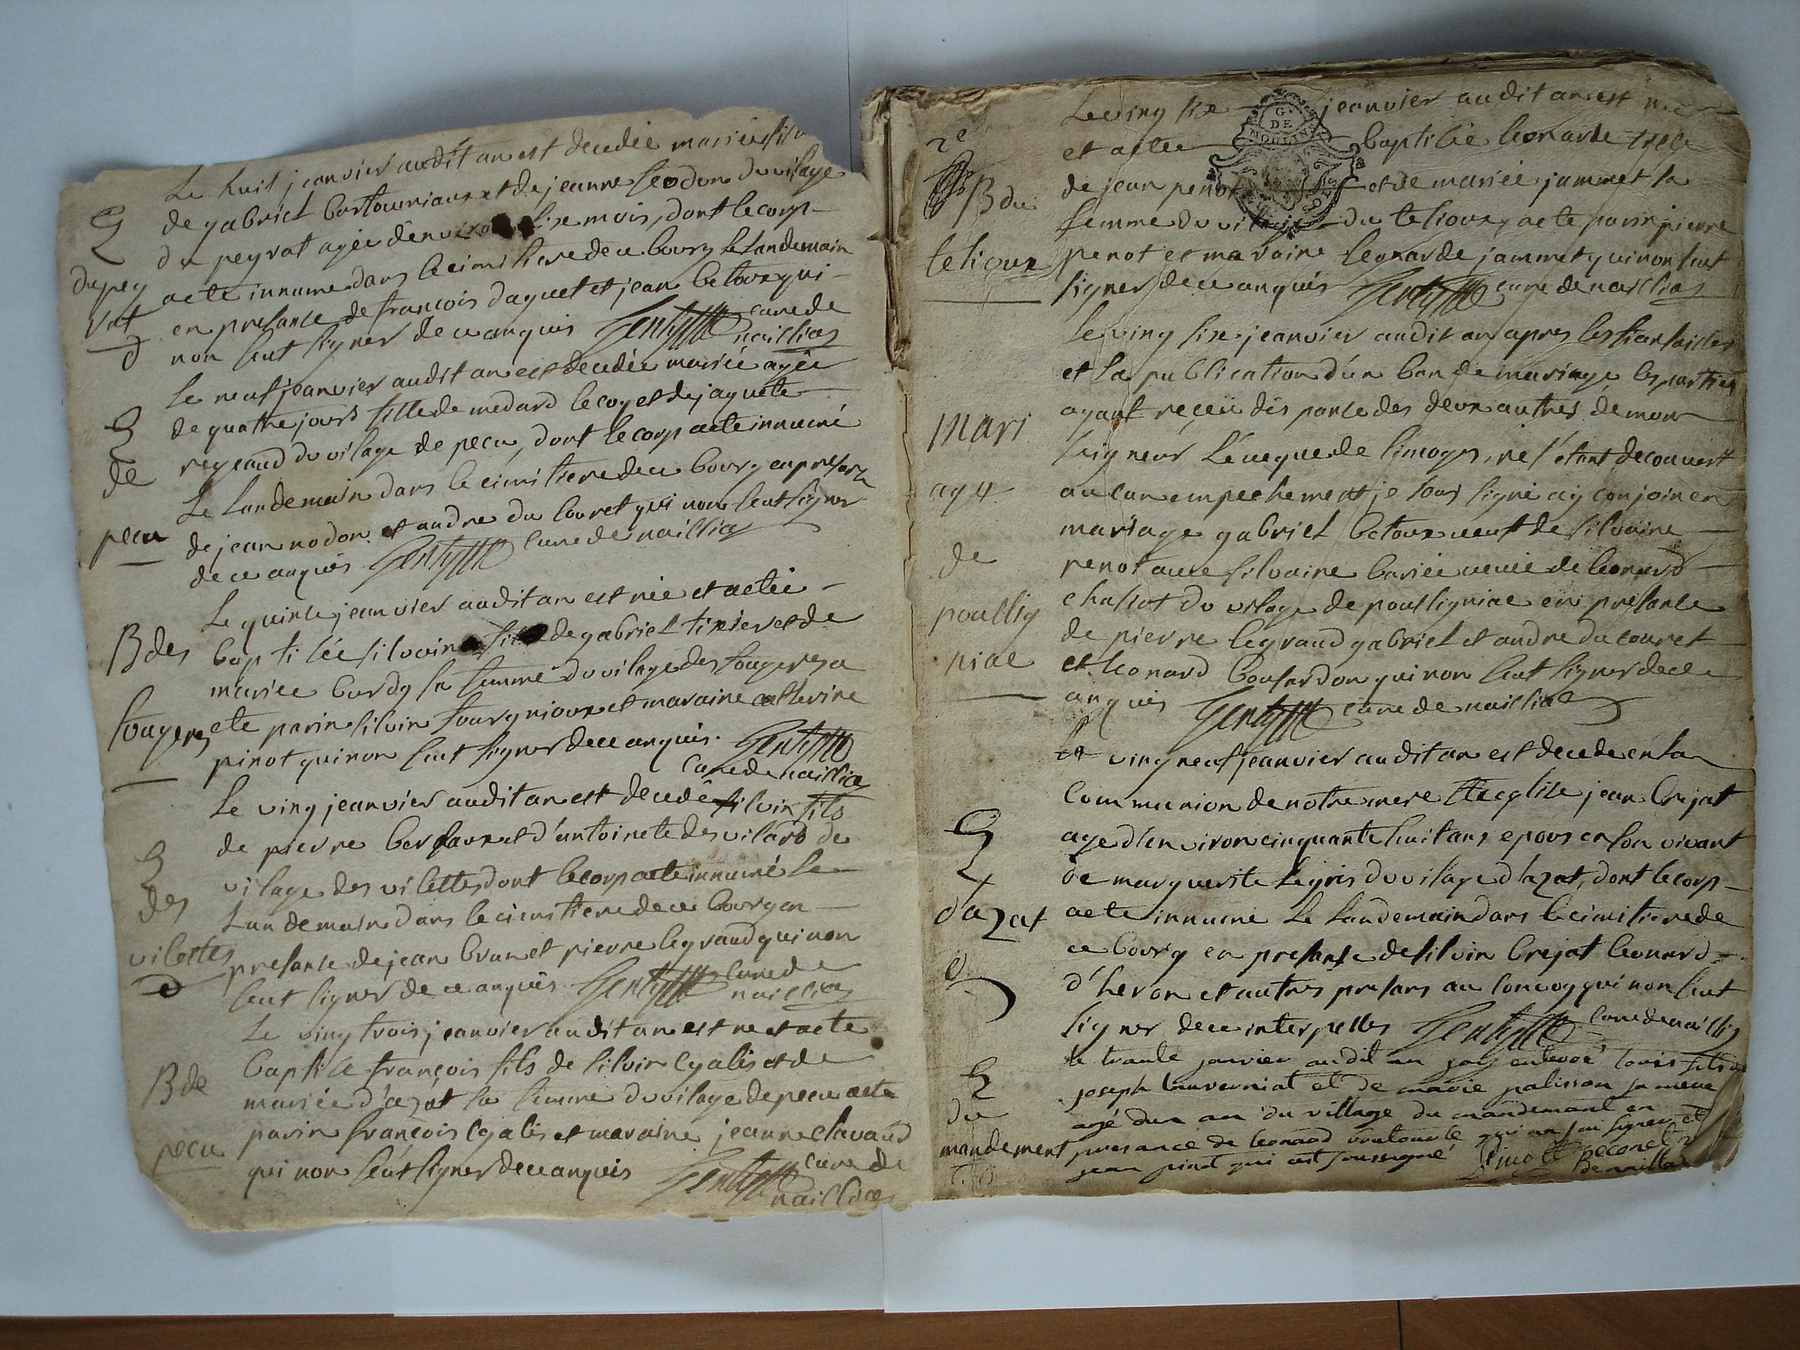 Le huit jeanvier audit an est decedée mariée fille
de gabriel bertourieaux et de jeanne feodon du vilage
du peyrat agée d'environ sixe mois, dont le corp
acte innumé dans le cimitiere de ce bourg le landemain
en presance de francois daguet et jean betoux qui
non sceut signer de ce anquis curé de
naillias
dupey
rat
d
Le neuf jeanvier audit an est decedée mariée agée
de quatre jours fille de medard lecoq et de jaquete
regeaud du vilage de pecu, dont le corp acte innumé
Le Landemain dans le cimitiere de ce bourg en presance
de jean nodon et andre du couret qui non sceut signer
de ce anquis curé de naillias
de
pecu
Le quinse jeanvier audit an est née et actée
baptisée silvaine fille de gabriel tixier et de
mariée bardy sa femme du vilage des fougeres a
ete parin silvin fourgnioux et maraine catherine
pinot qui non sceut signer de ce anquis.
curé de naillias
B des
fougeres
Le ving jeanvier audit an est decedé silvin fils
de pierre bersaux et d'antoinete desvilards de
vilage des vilettes dont le corp acte innumé le
Landemain dans le cimitiere de ce bourg en
presance de jean brun et pierre legraud qui non
sceut signer de ce anquis curé de
naillias
des
vilettes
d
Le ving trois jeanvier audit an est ne et acte
baptisé françois fils de silvin lyalis et de
mariée d'azat sa femme du vilage de pecu acte
parin françois lyalis et maraine jeanne clavaud
qui non sceut signer de ce anquis curé de
naillias
B de
pecu
Le ving six jeanvier audit an est née
G.
DE
MOULINS
et actée baptisée leonarde fille
de jean penot et de mariée jammet sa
femme du vilage du telioux, acte parin pierre
penot et maraine leonarde jammet qui non sceut
signer de ce anquis curé de naillias
2e
B du
telioux
Le ving sixe jeanvier audit an apres les fiansailles
et la publication d'un ban de mariage, les parties
ayant reçeü dis panse des deux autres de mon
seigneur L'éveque de limoges, ne s'etant decouvert
aucun empechement je sous signé ay conjoin en
mariage gabriel betoux veuf de silvaine
penot avec silvaine bariée veuve de leonard
chassot du vilage de poussigniat en presance
de pierre legraud gabriel et andre du couret
et leonard bousardon qui non sceut signer de ce
anquis curé de naillias
mari
age
de
poussig
niac
Le ving neuf jeanvier audit an est decede en la
Communion de notre mere Ste eglise jean brejat
age d'environ cinquante huit ans epous en son vivant
de marguerite legris du vilage d'azat, dont le corp
acte innumé le landemain dans le cimitiere de
ce bourg en presance de silvin brejat leonard
d'heron et autres presans au convoy qui non sceut
signer de ce interpellés curé de naillias
d'azat
d
le trante janvier audit an jay enteré louis fils de
joseph lauverniat et de marie palisson sa mere
agé dun an du village du mandement en
presance de leonard voutourle qui na su signer et
jean pinot qui est soussigné Pinot
de naillas
du
mandement